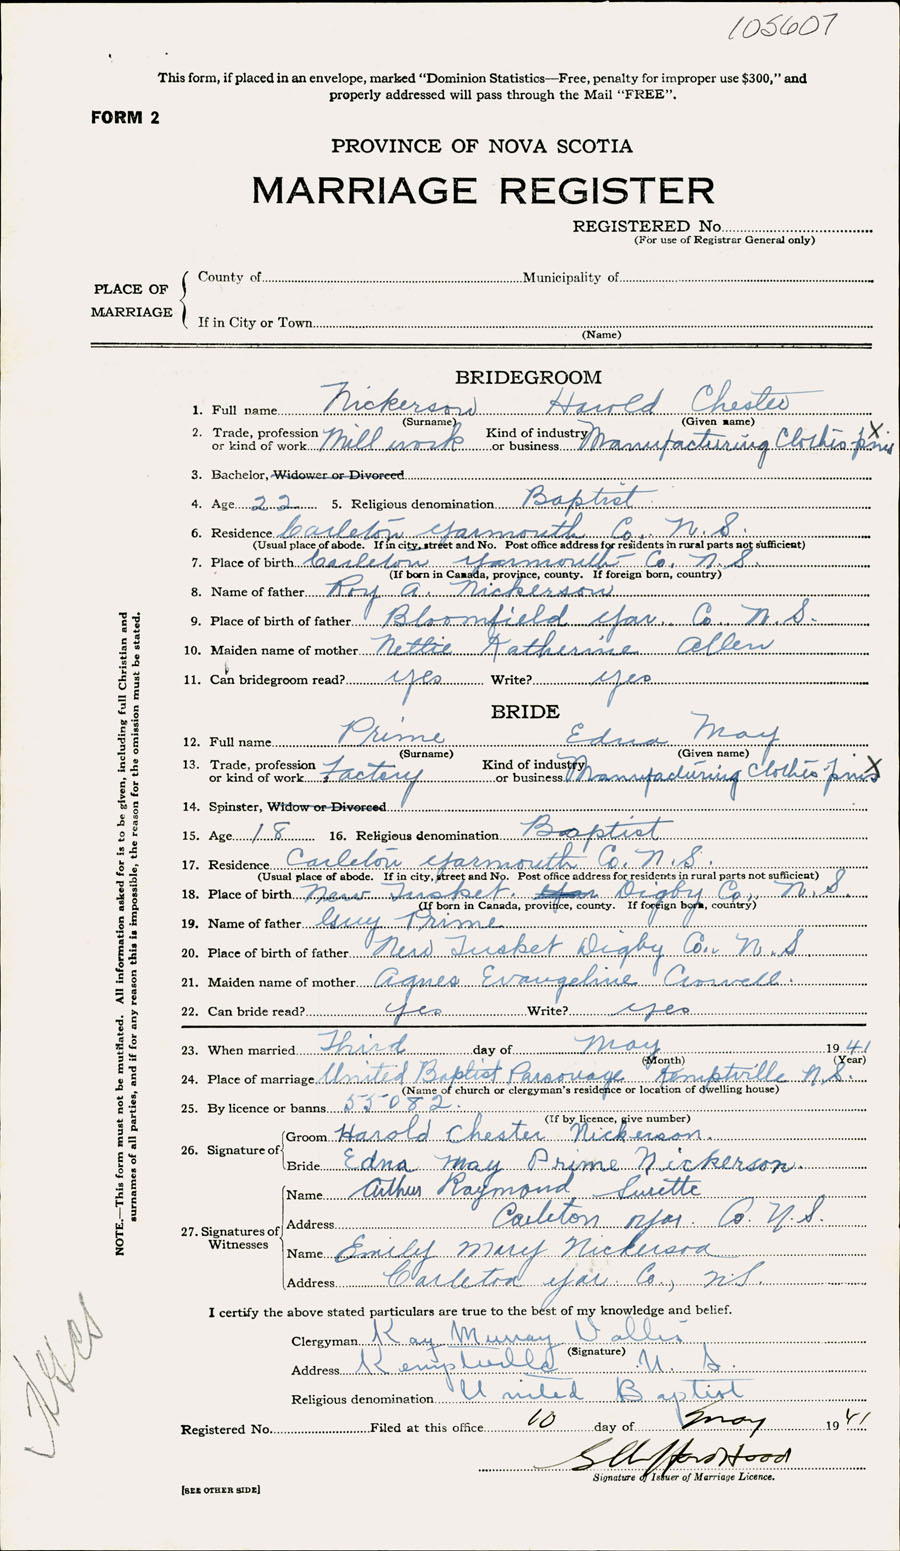 105607
This form, if placed in an envelope, marked "Dominion Statistics—Free, penalty for improper use $300," and
properly addressed will pass through the Mail "FREE".
FORM 2
PROVINCE OF NOVA SCOTIA
MARRIAGE REGISTER
REGISTERED No.
(For use of Registrar General only)
PLACE OF MARRIAGE
County of Municipality of
If in City or Town
(Name)
BRIDEGROOM
1. Full name Nickerson Harold Chester
(Surname) (Given name)
2. Trade, profession or kind of work Mill work Kind of industry or business Manufacturing Clothes pins X
3. Bachelor, Widower or Divorced
4. Age 22 5. Religious denomination Baptist
6. Residence Carleton Yarmouth Co. N.S.
(Usual place of abode. If in city, street and No. Post office address for residents in rural parts not sufficient)
7. Place of birth Carleton Yarmouth Co. N.S.
(If born in Canada, province, county. If foreign born, country)
8. Name of father Roy A. Nickerson
9. Place of birth of father Bloomfield Yar. Co. N.S.
10. Maiden name of mother Nettie Katherine Allen
11. Can bridegroom read? yes Write? yes
BRIDE
12. Full name Prime Edna May
(Surname) (Given name)
13. Trade, profession or kind of work Factory Kind of industry or business Manufacturing Clothes pins X
14. Spinster, Widow or Divorced
15. Age 18 16. Religious denomination Baptist
17. Residence Carleton Yarmouth Co. N.S.
(Usual place of abode. If in city, street and No. Post office address for residents in rural parts not sufficient)
18. Place of birth New Tusket. Yar Digby Co., N.S.
(If born in Canada, province, county. If foreign born, country)
19. Name of father Guy Prime
20. Place of birth of father New Tusket Digby Co. N.S
21. Maiden name of mother Agnes Evangeline Crowell.
22. Can bride read? yes Write? yes
23. When married Third day of May 1941
(Month) (Year)
24. Place of marriage United Baptist Parsonage Kemptville N.S.
(Name of church or clergyman's residence or location of dwelling house)
25. By licence or banns 55082.
(If by licence, give number)
26. Signature of
Groom Harold Chester Nickerson.
Bride Edna May Prime Nickerson.
27. Signatures of Witnesses
Name Arthur Raymond Surette
Address Carleton Yar. Co. N.S.
Name Emily Mary Nickerson
Address Carleton Yar. Co., N.S.
I certify the above stated particulars are true to the best of my knowledge and belief.
Clergyman Kay Murray Vallis
(Signature)
Address Kemptville N.S.
Religious denomination United Baptist
Registered No. Filed at this office 10 day of May 1941
Signature of Issuer of Marriage Licence.
[SEE OTHER SIDE]
NOTE.—This form must not be mutilated. All information asked for is to be given, including full Christian and
surnames of all parties, and if for any reason this is impossible, the reason for the omission must be stated.